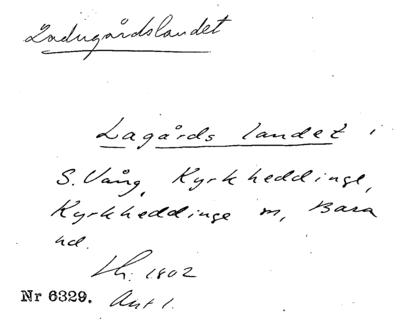 Ladugårdslandet
Lagårds landet i
S. Vång, Kyrkheddinge,
Kyrkheddinge sn, Bara
hd.
Lh. 1802
Nr 6329. Akt 1.